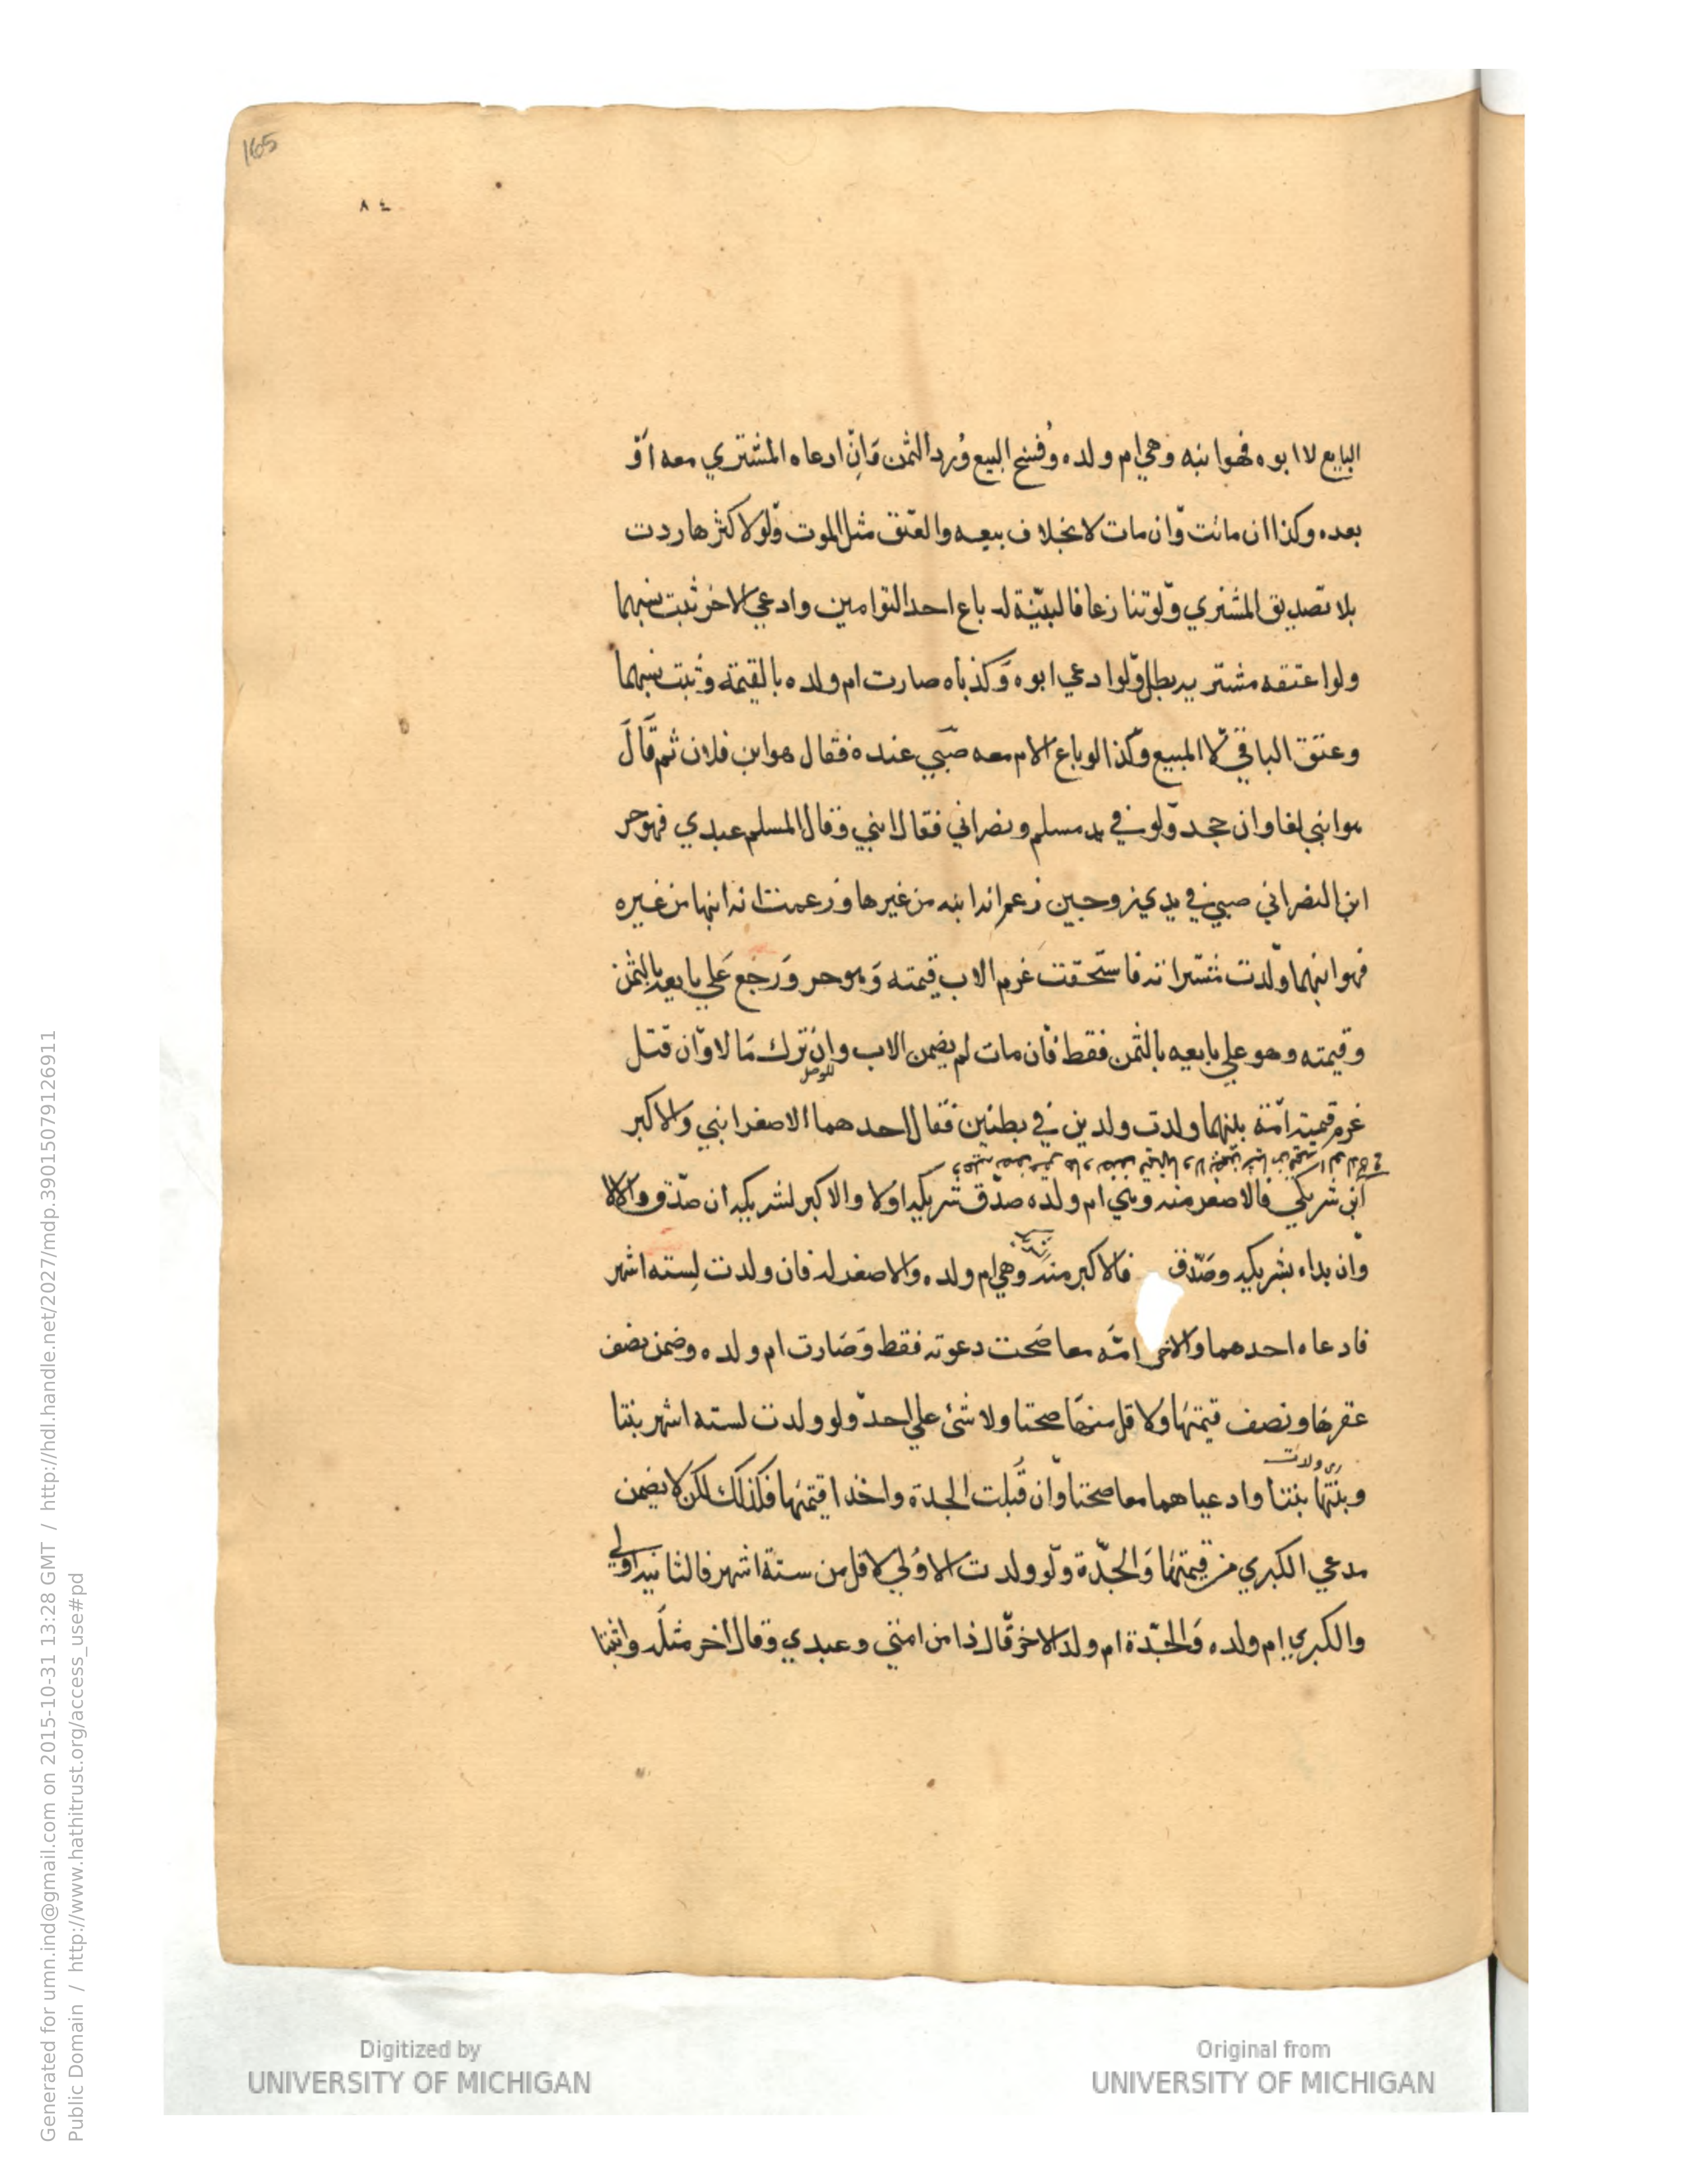 165
٨٤
البايع لا ابوه فهو ابنه وهي ام ولده وفسخ البيع ورد الثمن وان ادعاه المشتري معه او
بعده وكذا ان ماتت وان مات لا بخلاف بيعه والعتق مثل الموت ولو لاكثرها ردت
بلا تصديق المشتري ولو تنازعا فالبينة له باع احد التوامين وادعي الاخر ثبت نسبهما
ولو اعتقه مشتريه بطل ولو ادعي ابوه وكذباه صارت ام ولده بالقيمة وثبت نسبهما
وعتق الباقي لا المبيع وكذا لو باع الام معه صبي عنده فقال هو ابن فلان ثم قال
هو ابني لغا وان جحد ولو في يد مسلم ونصراني فقال ابني وقال المسلم عبدي فهو حر
ابن النصراني صبي في يدي زوجين زعم انه ابنه من غيرها وزعمت انه ابنها من غيره
فهو ابنهما ولدت مشتراته فاستحقت غرم الاب قيمته وهو حر ورجع علي بايعه بالثمن
وقيمته وهو علي بايعه بالثمن فقط فان مات لم يضمن الاب وان ترك مالا وان قتل
للوصل
غرم قيمته امة بينهما ولدت ولدين في بطنين فقال احدهما الاصغر ابني والاكبر
ابن شريكي فالاصغر منه وهي ام ولده صدق شريكه اولا والاكبر لشريكه ان صدق والا لا
وان بداه بشريكه وصدق فالاكبر منه وهي ام ولده والاصغر له فان ولدت لسته اشهر
فادعاه احدهما والاخر امه معا صحت دعوته فقط وصارت ام ولده وضمن نصف
عقرها ونصف قيمتها ولاقل منها صحتا ولا شئ علي احد ولو ولدت لسته اشهر بنتا
ولدت
وبنتها بنتا وادعياهما معا صحتا وان قبلت الجدة واخذا قيمتها فكذلك لكن لا يضمن
مدعي الكبري من قيمتها والجدة ولو ولدت الاولي لاقل من ستة اشهر فالثانيه اولي
والكبري ام ولده والجدة ام ولد الاخر قال ذا من امتي وعبدي وقال اخر مثله واثبتا
Digitized by
UNIVERSITY OF MICHIGAN
Original from
UNIVERSITY OF MICHIGAN
Generated for umn.ind@gmail.com on 2015-10-31 13:28 GMT / http://hdl.handle.net/2027/mdp.39015079126911
Public Domain / http://www.hathitrust.org/access_use#pd